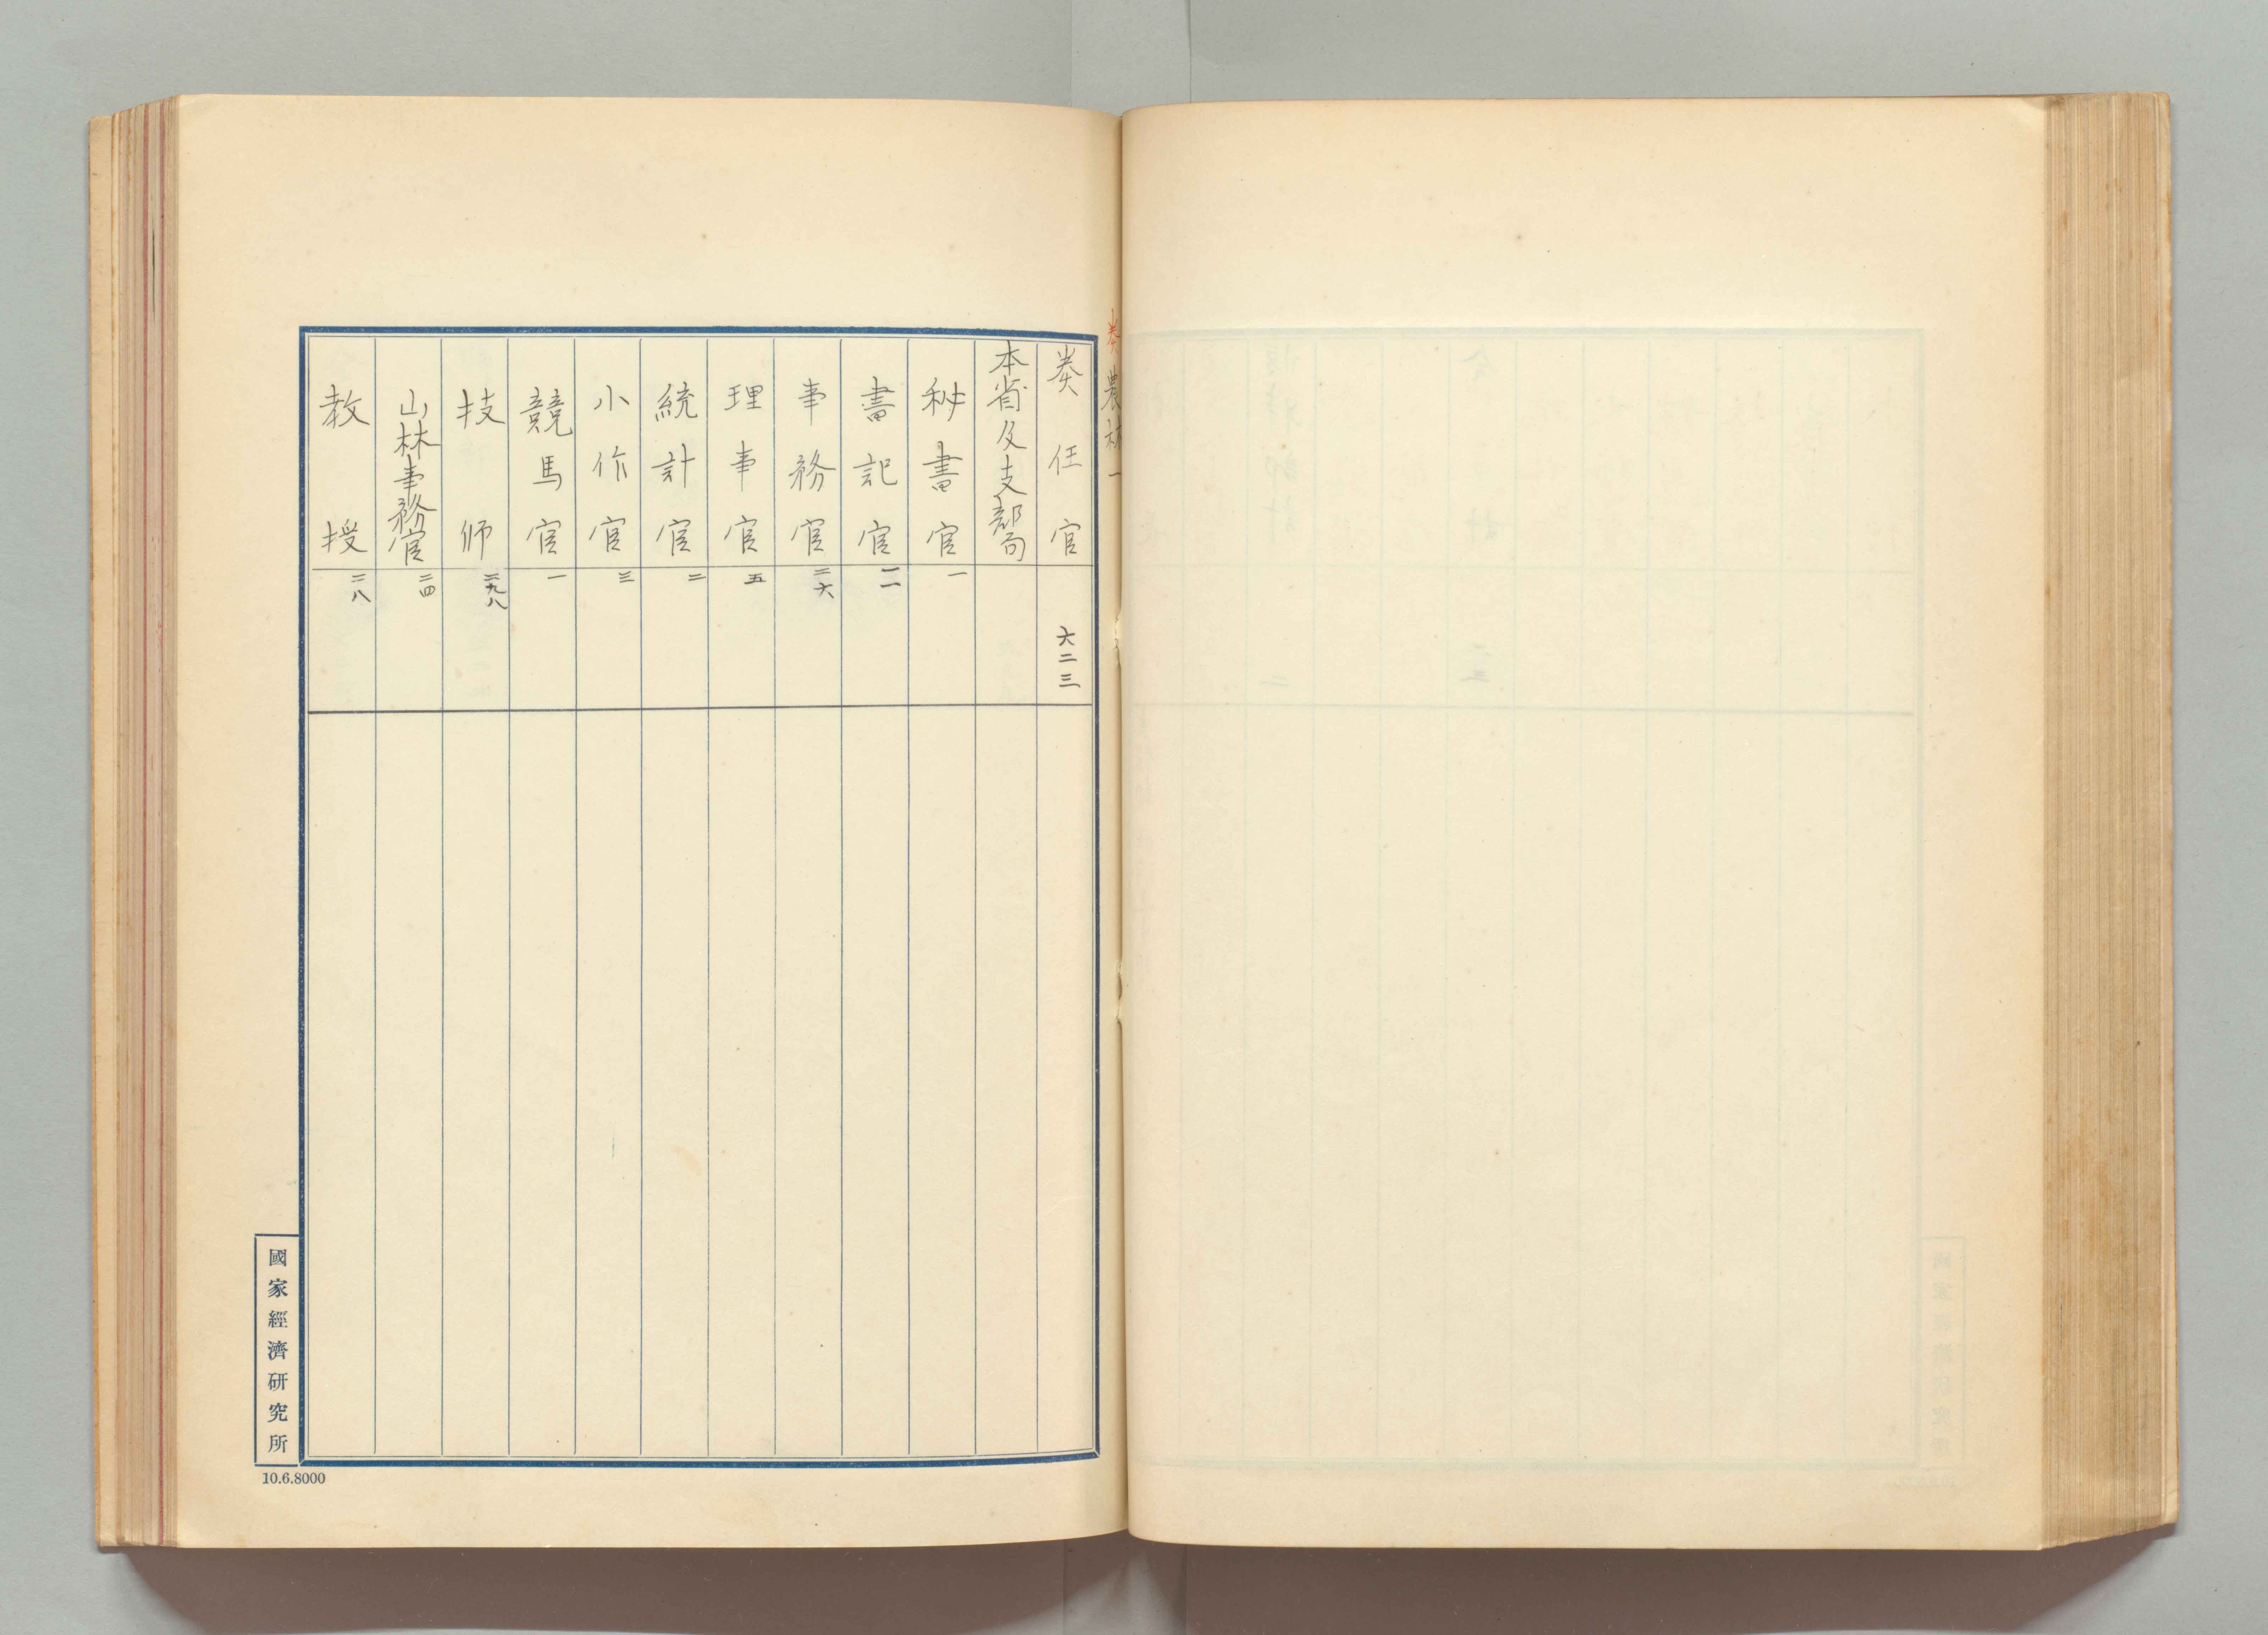 奏農林一
奏任官 六二三
本省及支部局
秘書官 一
書記官 一一
事務官 二六
理事官 五
統計官 二
小作官 三
競馬官 一
技師 二九八
山林事務官 二四
教授 二八
國家經濟研究所
10.6.8000